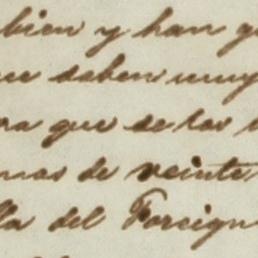 bien y han
saben muy
que se las
mas de veinte
del Foreign